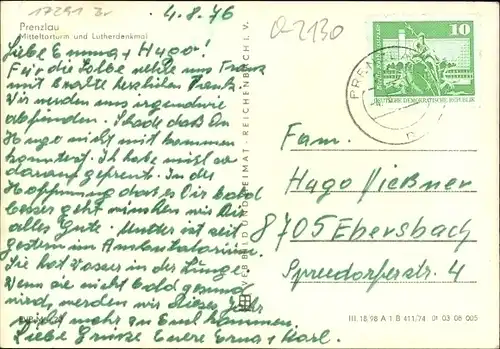 17291 Br
4.8.76
a-2130
Prenzlau
Mitteltorturm und Lutherdenkmal
Liebe Emma, + Hugo!
Für die Salbe nehle uns Franz
mit besten herzlichen Dank.
Wir werden uns irgendwie
abfinden. Schade daß Du
Hugo nicht mit kommen
konntest. Ich habe mich so
darauf gefreut. In der
Hoffnung das es Dir bald
besser geht wünschen wir Dir
alles Gute. Mutter ist seit
gestern im Ambulatorium.
Sie hat Wasser in der Lunge.
Wenn sie nicht bald gesund
wird, werden wir dieses Jahr
nicht mehr zu Euch kommen.
Liebe Grüsse Eure Erna, + Karl.
VEB BILD UND HEIMAT · REICHENBACH I. V.
10
DEUTSCHE DEMOKRATISCHE REPUBLIK
PRENZLAU
Fam.
Hugo Nießner
8705 Ebersbach
Spreedorferstr. 4
III. 18 98 A 1 B 411/74 01 03 08 005